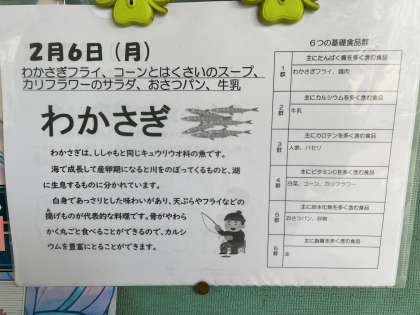 2月6日（月）
わかさぎフライ、コーンとはくさいのスープ、
カリフラワーのサラダ、おさつパン、牛乳
わかさぎ
わかさぎは、ししゃもと同じキュウリウオ科の魚です。
海で成長して産卵期になると川をのぼってくるものと、湖
に生息するものに分かれています。
白身であっさりとした味わいがあり、天ぷらやフライなどの
揚げものが代表的な料理です。骨がやわら
かく丸ごと食べることができるので、カルシ
ウムを豊富にとることができます。
６つの基礎食品群
主にたんぱく質を多く含む食品
1群
わかさぎフライ、鶏肉
主にカルシウムを多く含む食品
2群
牛乳
主にカロテンを多く含む食品
3群
人参、パセリ
主にビタミンCを多く含む食品
4群
白菜、コーン、カリフラワー
主に炭水化物を多く含む食品
5群
おさつパン、砂糖
主に脂質を多く含む食品
6群
油